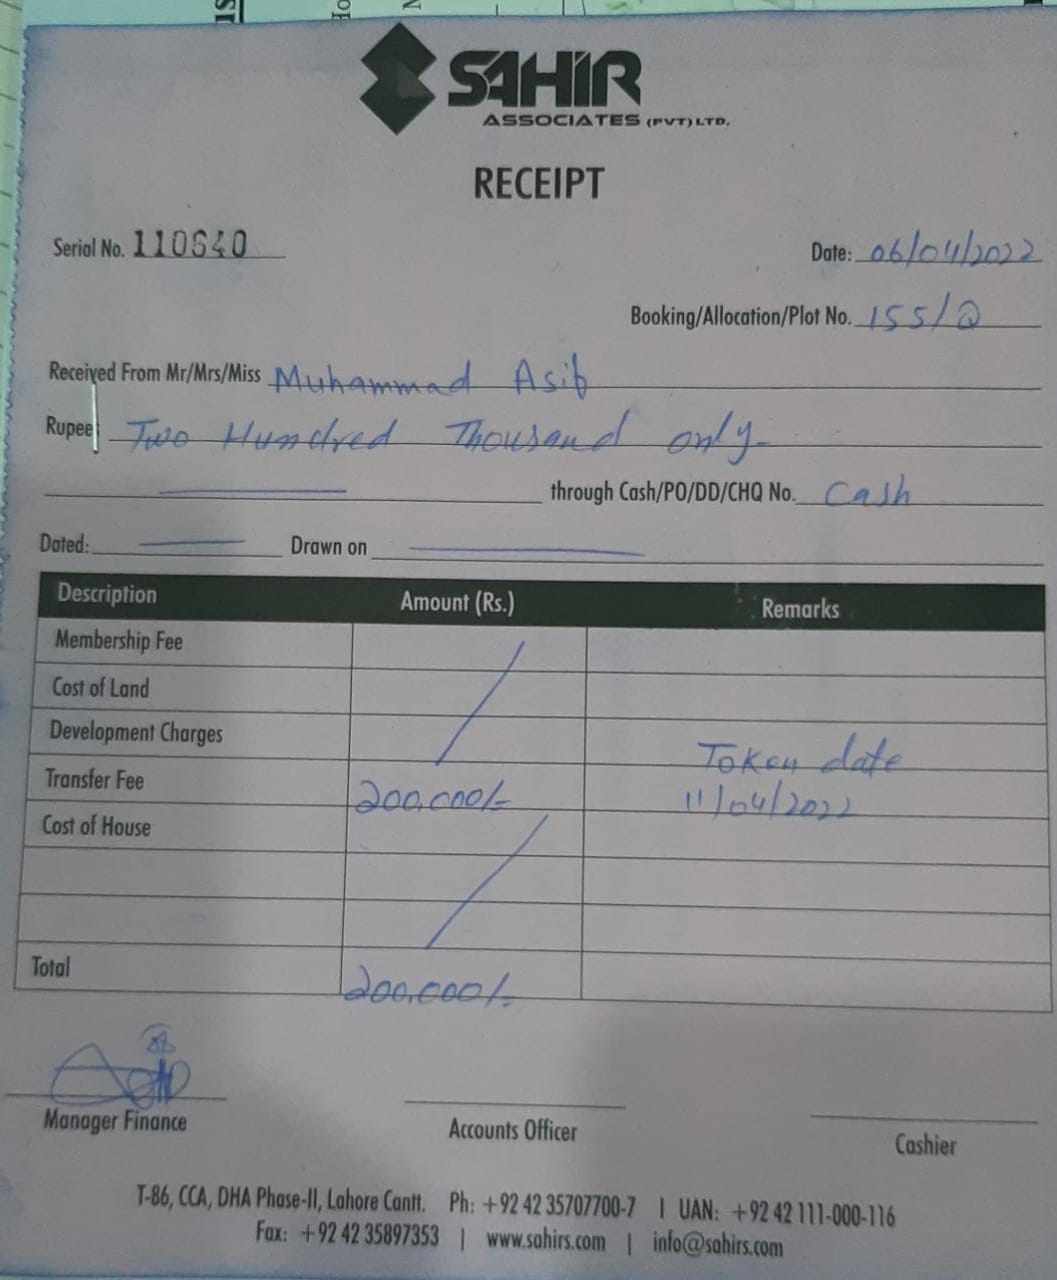 SAHIR
ASSOCIATES (PVT) LTD.
RECEIPT
Serial No. 110640
Date: 06/04/2022
Booking/Allocation/Plot No. 155/Q
Received From Mr/Mrs/Miss Muhammad Asif
Rupee Two Hundred Thousand only
through Cash/PO/DD/CHQ No. Cash
Dated: Drawn on
Description Amount (Rs.) Remarks
Membership Fee
Cost of Land
Development Charges
Token date
Transfer Fee 200,000/- 11/04/2022
Cost of House
Total 200,000/-
Manager Finance
Accounts Officer
Cashier
T-86, CCA, DHA Phase-II, Lahore Cantt. Ph: +92 42 35707700-7 | UAN: +92 42 111-000-116
Fax: +92 42 35897353 | www.sahirs.com | info@sahirs.com